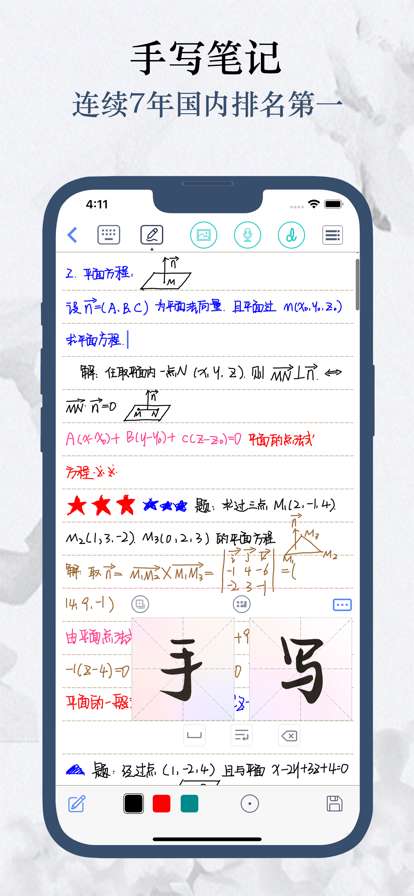 手写笔记
连续7年国内排名第一
4:11
2. 平面方程. n M
设 n=(A.B.C) 为平面法向量. 且平面过 M(x₀,y₀,z₀)
求平面方程.
解: 任取平面内一点N (x,y,z). 则 MN⊥n. ⇔
MN·n=0 n M N
A(x-x₀)+ B(y-y₀)+ C(z-z₀)=0 平面的点法式
方程
题: 求过三点 M₁(2,-1,4)
M₂(1,3,-2) M₃(0,2,3) 的平面方程 n M₃ M₁ M₂
解 取n= M₁M₂×M₁M₃= | i j k | =(
-1 4 -6
-2 3 -1
14,9,-1)
由平面点法式 +9
-1(z-4)=0
平面的一般
手写
题: 经过点 (1,-2,4) 且与平面 x-2y+3z+4=0